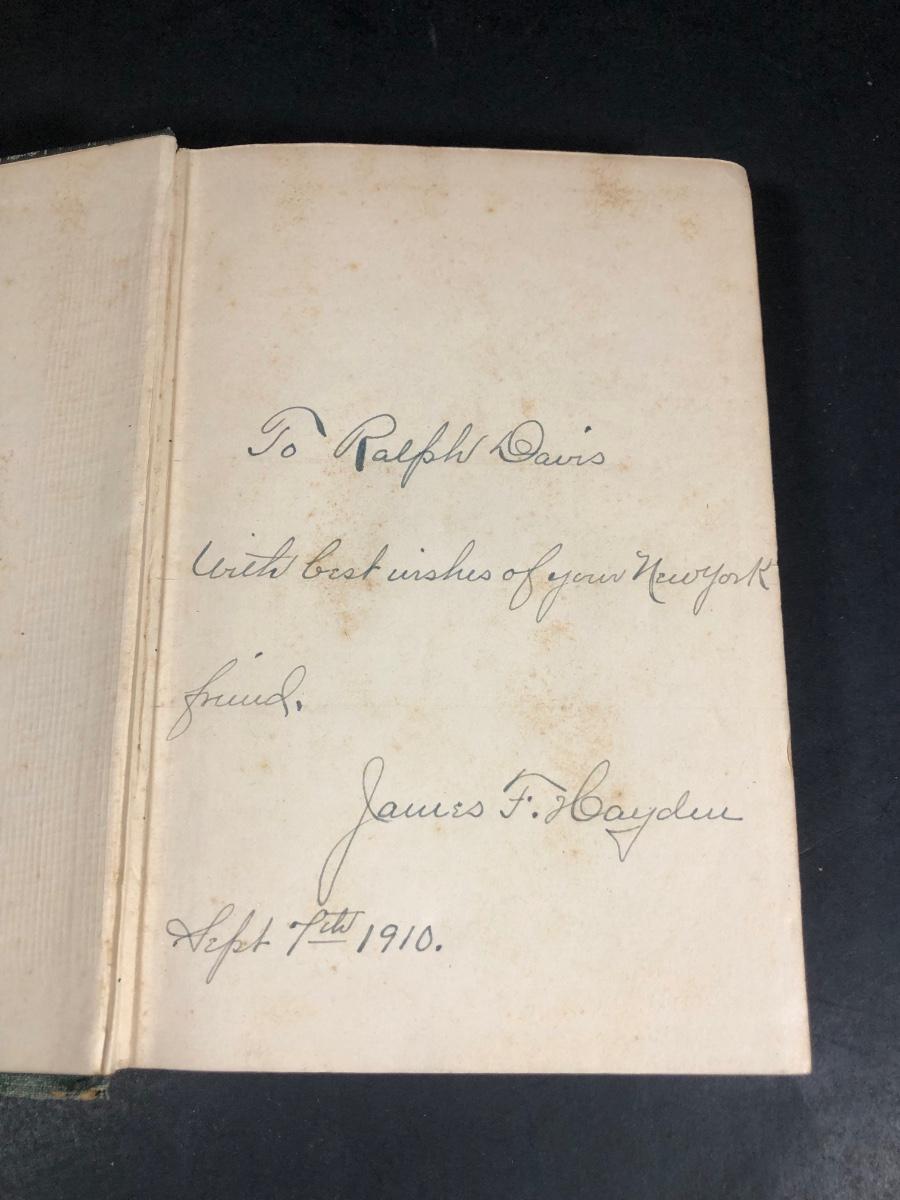 To Ralph Davis
With best wishes of your New York
friend.
James F. Hayden
Sept 7th 1910.